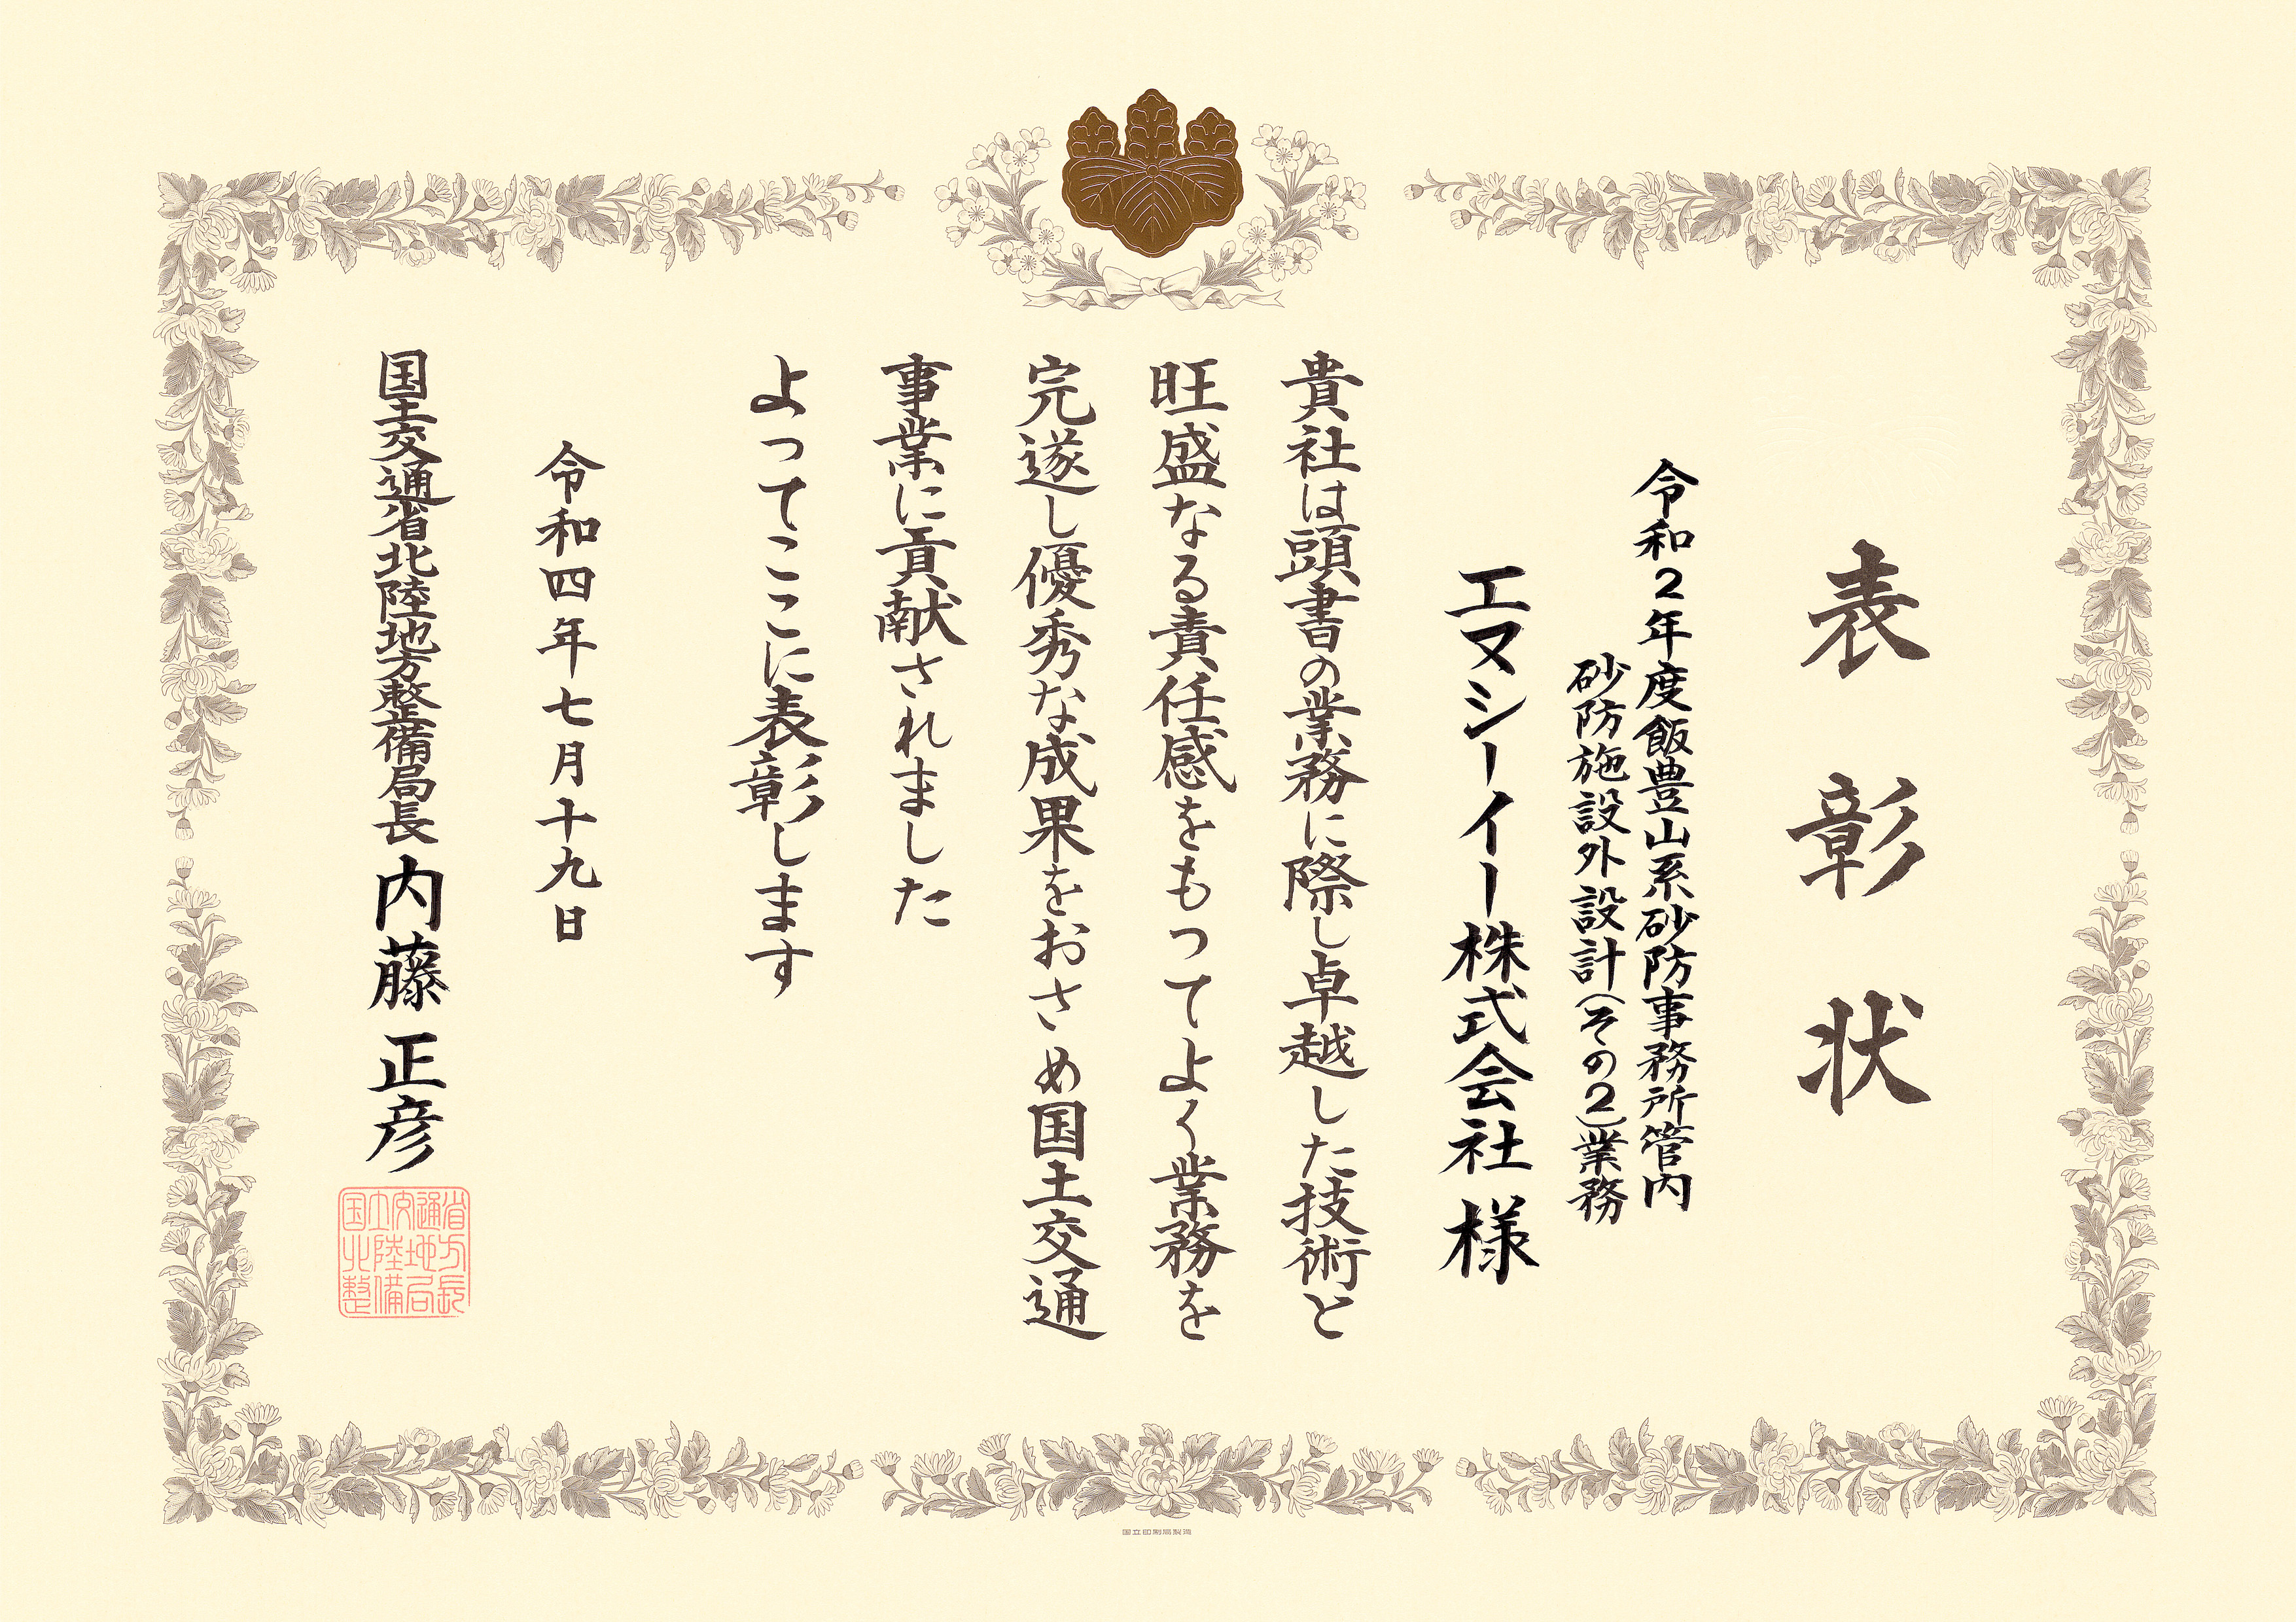 表彰状
令和２年度飯豊山系砂防事務所管内
砂防施設外設計（その２）業務
エマシーイー株式会社 様
貴社は頭書の業務に際し卓越した技術と
旺盛なる責任感をもつてよく業務を
完遂し優秀な成果をおさめ国土交通
事業に貢献されました
よつてここに表彰します
令和四年七月十九日
国土交通省北陸地方整備局長 内藤 正彦
国土交通省
北陸地方
整備局長
国立印刷局製造